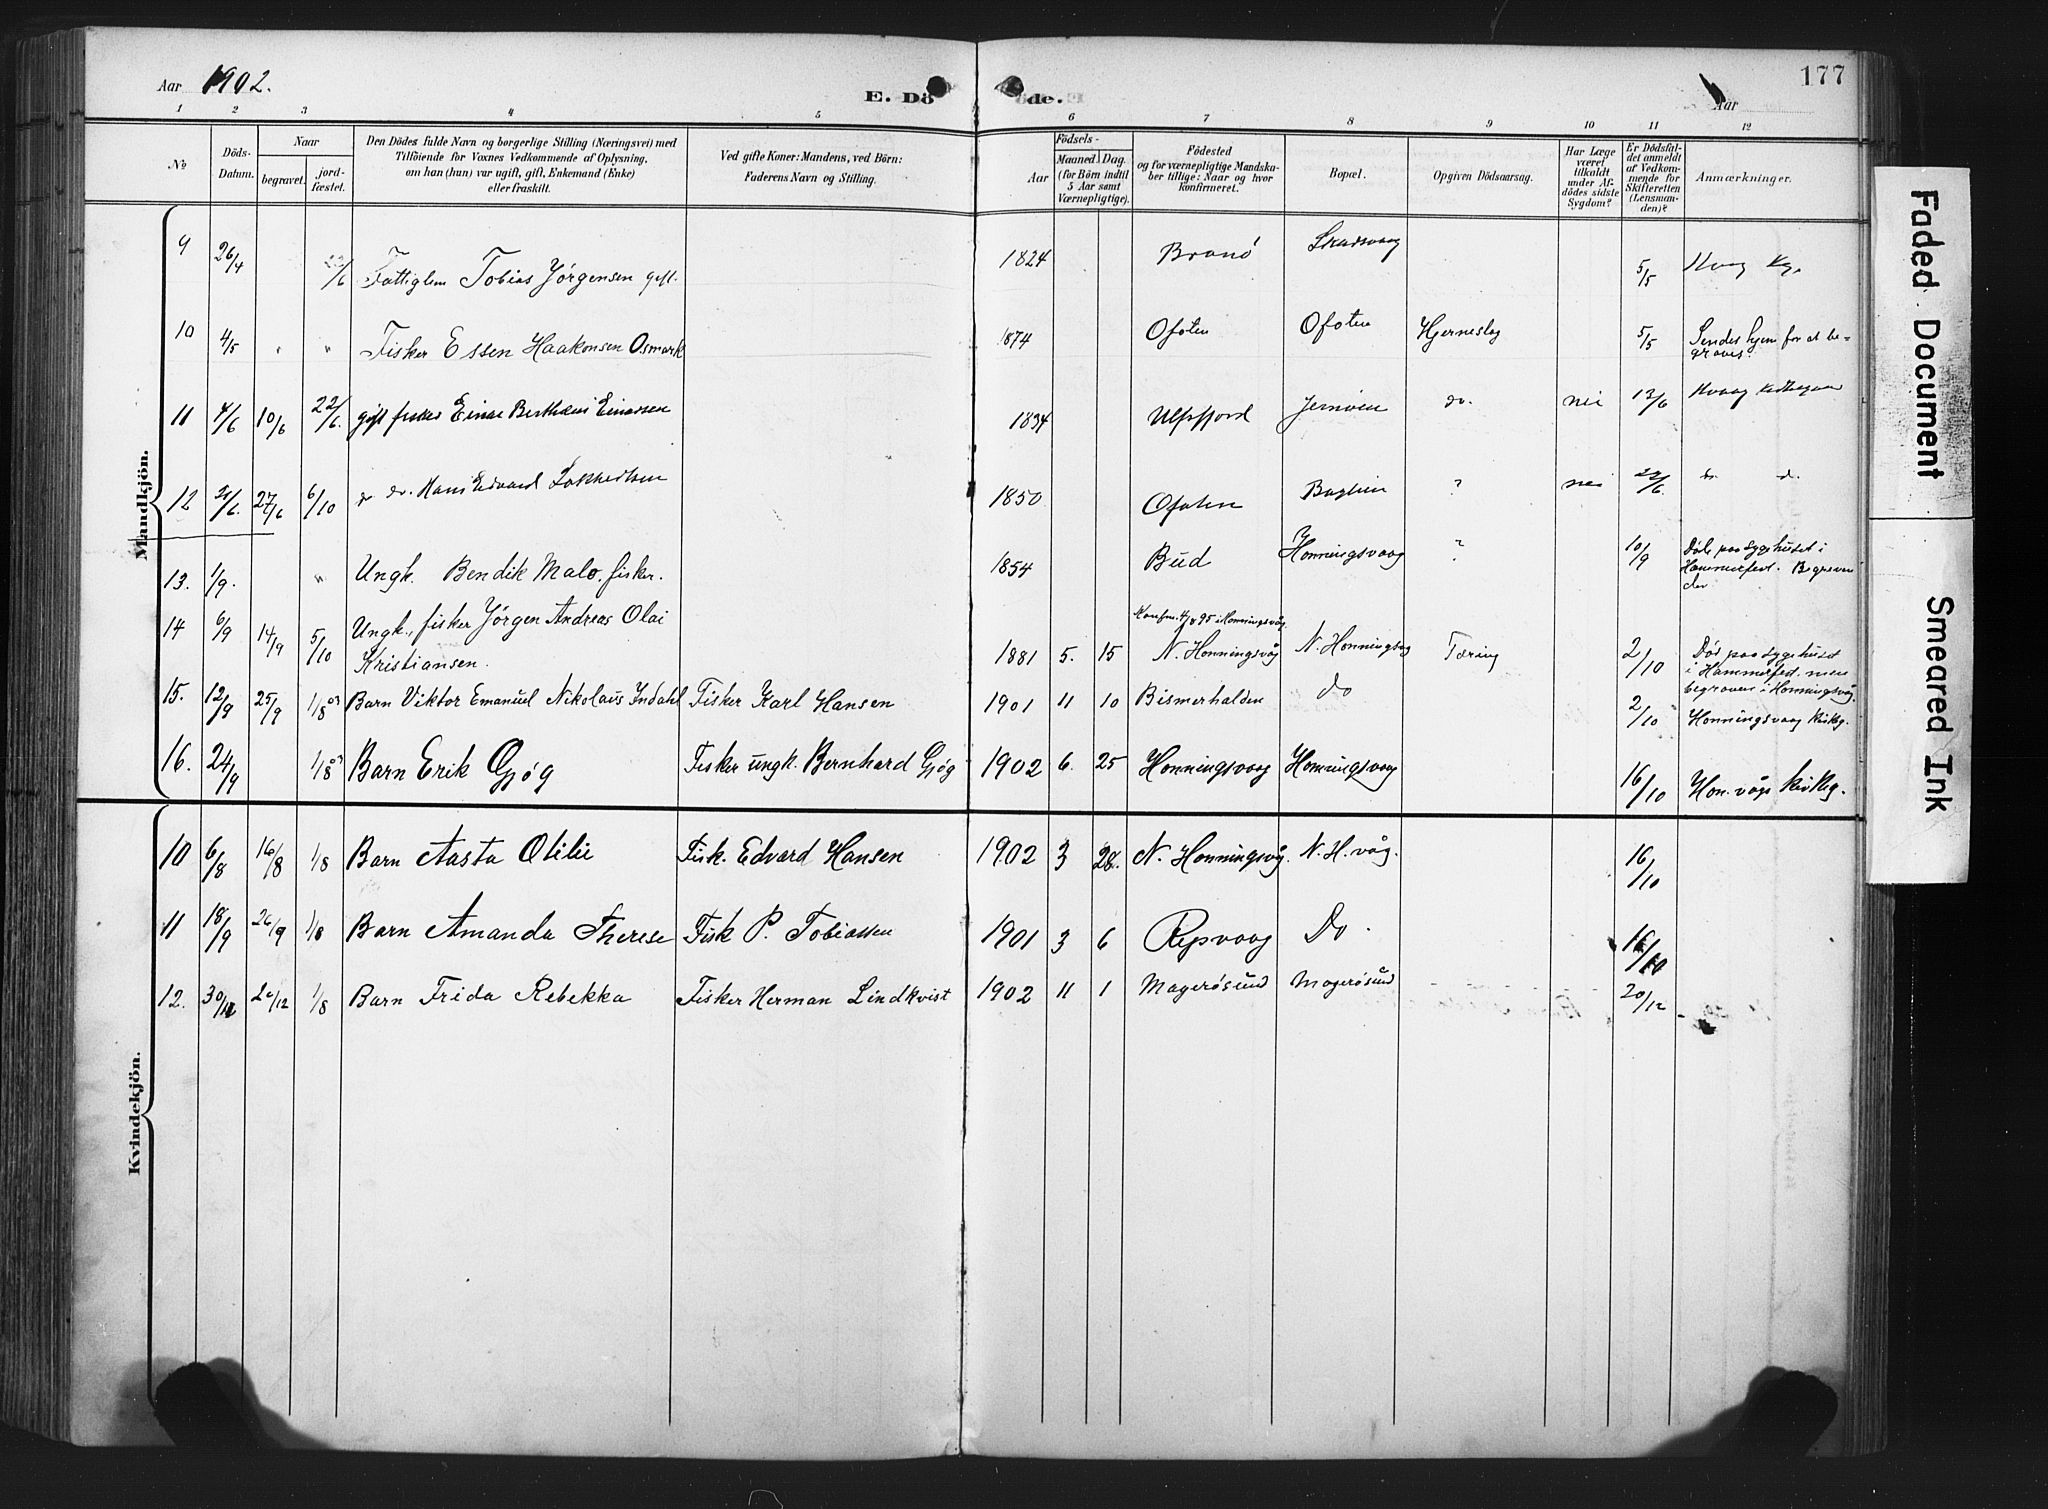 Aar 1902.
E. Döde.
Aar
177
1 2 3 4 5 6 7 8 9 10 11 12
No
Döds-Datum.
Naar
begravet.
jord-fæstet.
Den Dödes fulde Navn og borgerlige Stilling (Næringsvei) med
Tilföiende for Voxnes Vedkommende af Oplysning,
om han (hun) var ugift, gift, Enkemand (Enke)
eller fraskilt.
Ved gifte Koner: Mandens, ved Börn:
Faderens Navn og Stilling.
Födsels-
Aar
Maaned. Dag.
(for Börn indtil
5 Aar samt
Værnepligtige).
Födested
og for værnepligtige Mandska-
ber tillige: Naar og hvor
konfirmeret.
Bopæl.
Opgiven Dödsaarsag.
Har Læge
været
tilkaldt
under Af-
dödes sidste
Sygdom?
Er Dödsfal-
det anmeldt
af Vedkom-
mende for
Skifteretten
(Lensman-
den)?
Anmærkninger.
Mandkjön.
9 26/4 22/6 Fattiglem Tobias Jørgensen gift. 1824 Brønø 5/5
10 4/5 " " Fisker Essen Haakonsen Osmark 1874 Ofoten Ofoten Hjerneslag 5/5 Sendes hjem for at be-
graves.
11 4/6 10/6 22/6. gift fisker Einar Berthæus Einarsen 1834 Ulfsfjord do. nei 13/6
12 27/6 6/10 do. Hans Edvard 1850 Ofoten ? nei
13. 1/9. " Ungk. Bendik Malo. fisker. 1854 Bud Honningsvaag ? 10/9 Døde paa sygehuset i
Hammerfest. Begraven
der
14 6/9 14/9 5/10 Ungk., fisker Jørgen Andreas Olai
Kristiansen. 1881 5. 15 N. Honningsvåg N. Honningsvåg Tæring 2/10 Døde paa sygehuset
i Hammerfest. men
begraven i Honningsvåg
15. 12/9 25/9 1/8 03 Barn Viktor Emanuel Nikolaus Indahl Fisker Karl Hansen 1901 11 10 Bismerhalden do 2/10 Honningsvaag Kirkeg.
16. 24/9 1/8 03 Barn Erik Gjøg Fisker ungk. Bernhard Gjøg 1902 6. 25 Honningsvaag Honningsvaag 16/10 Hon.vågs kirkeg.
Kvindekjön.
10 6/8 16/8 1/8 Barn Aasta Otilie Fisk. Edvard Hansen 1902 3 28. N. Honningsvåg. N. H.våg. 16/10
11 18/9 26/9 1/8 Barn Amanda Therese Fisk P. Tobiassen 1901 3 6 Repvaag Do. 16/10
12. 30/11 20/12 1/8 Barn Frida Rebekka Fisker Herman Lindkvist 1902 11 1 Magerøsund Magerøsund 20/12
Faded Document
Smeared Ink